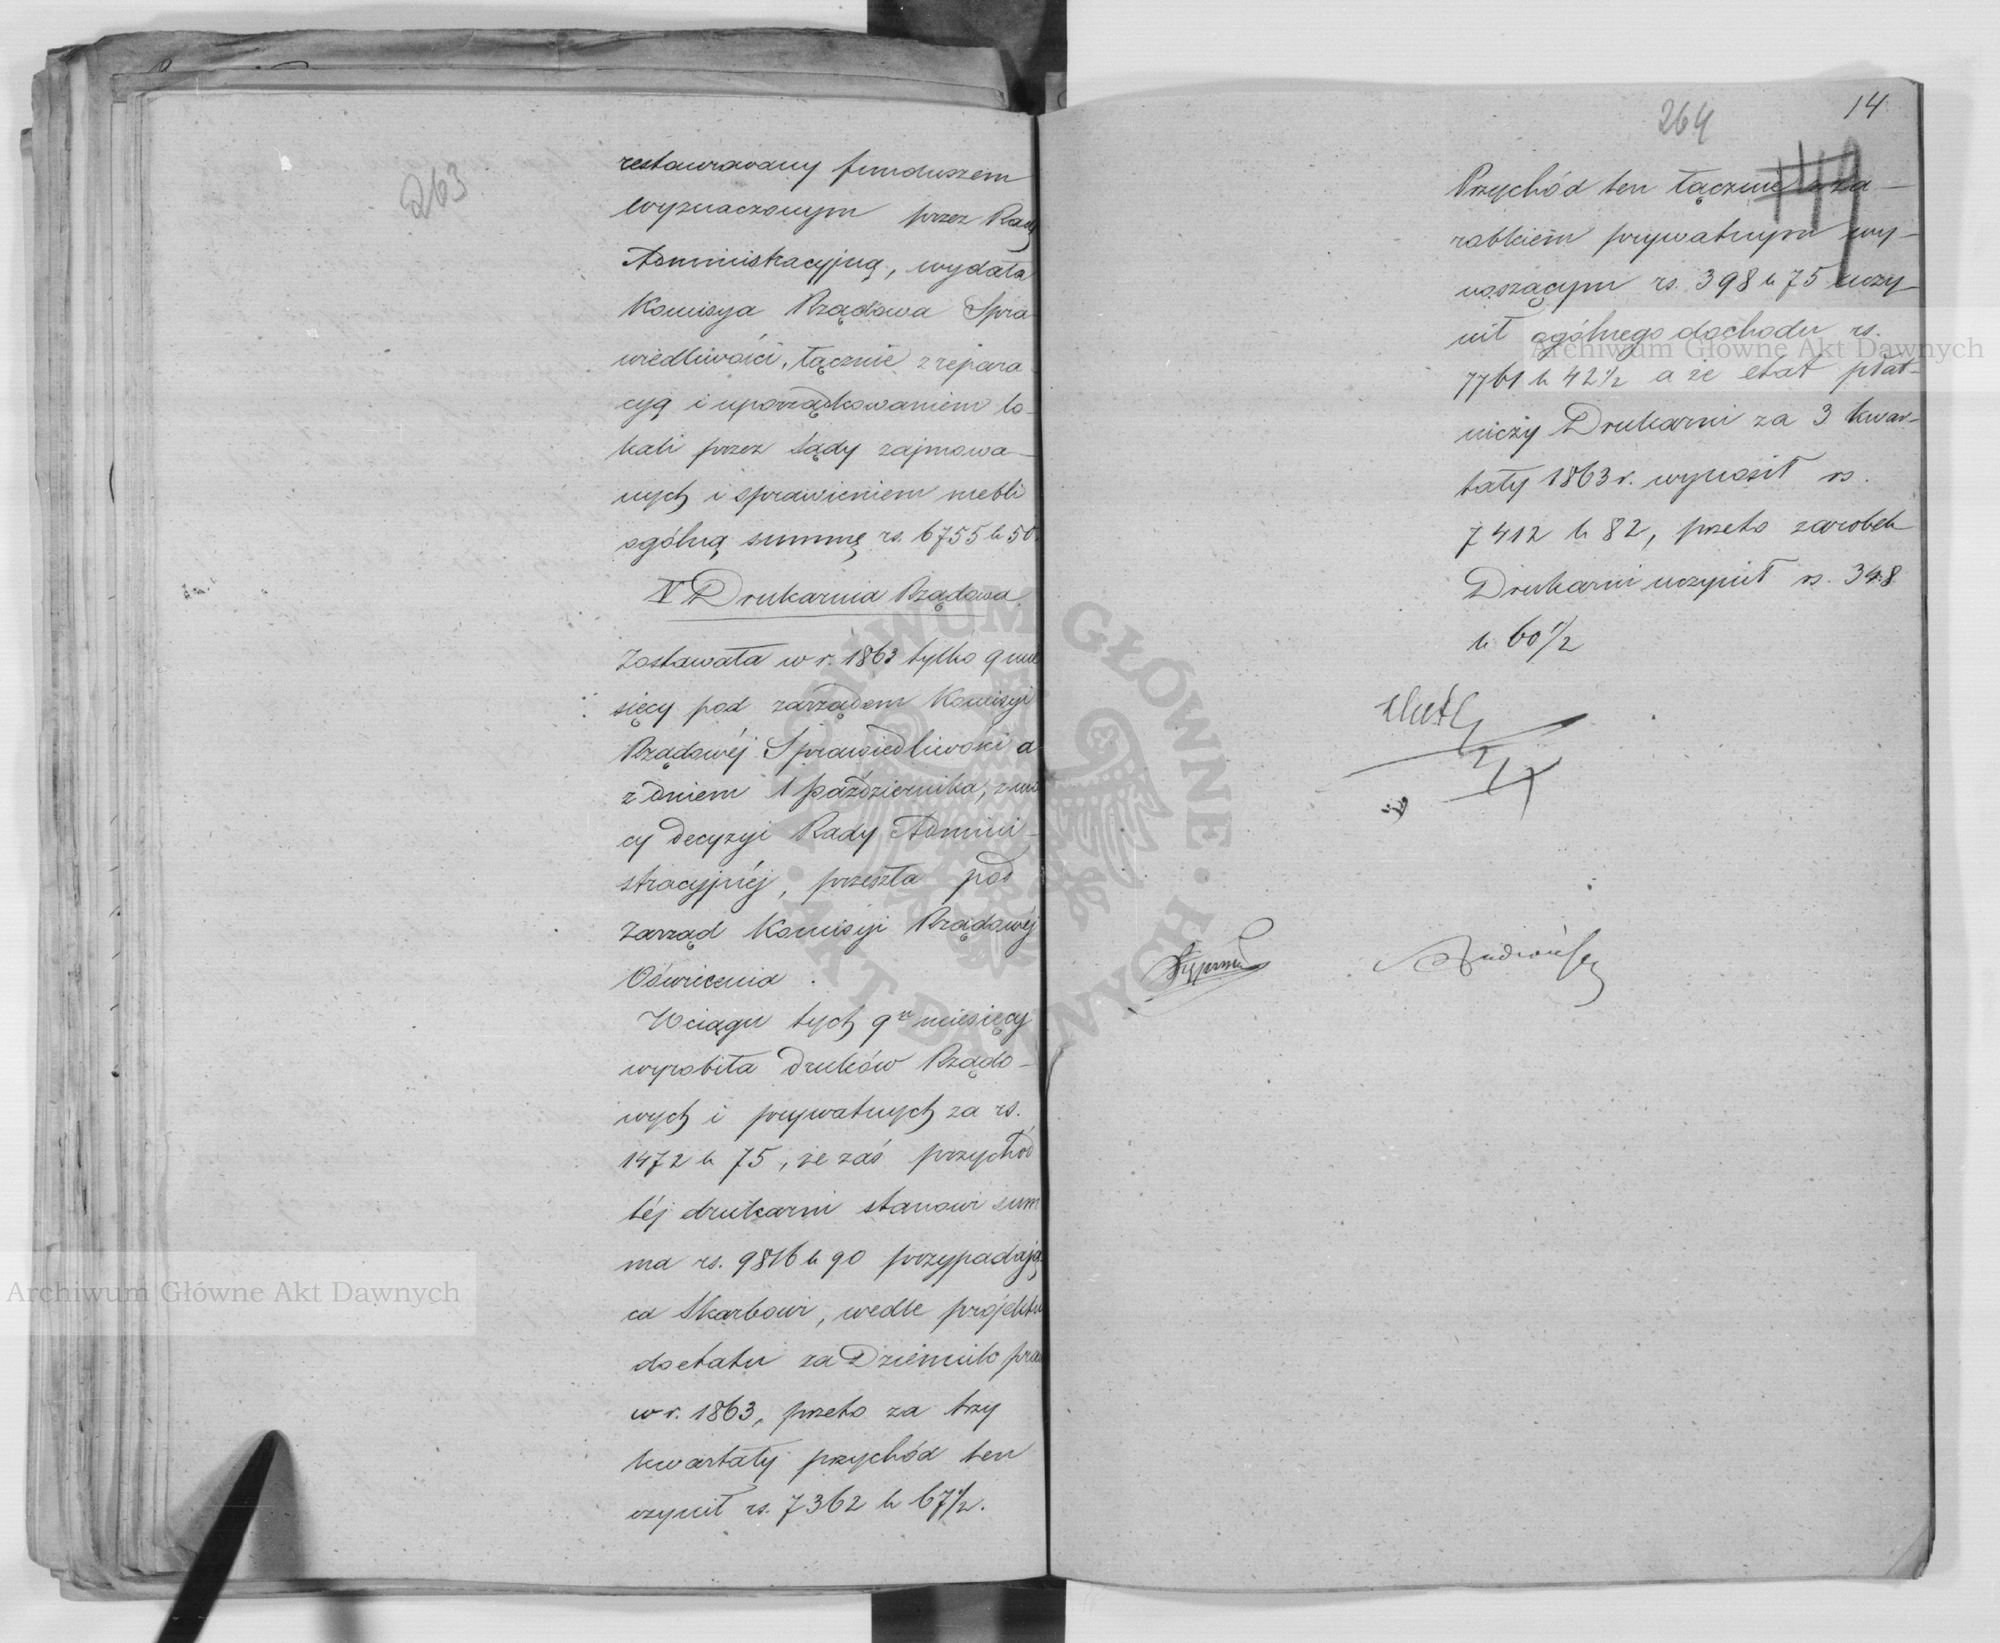 263
restaurowany funduszem
wyznaczonym przez Radę
Administracyjną, wydała
Komisya Rządowa Spra-
wiedliwości, łącznie z repara-
cyą i uporządkowaniem lo-
kali przez Sądy zajmowa-
nych i sprawieniem mebli
ogólną summę rs. 6755 k 50.
IV Drukarnia Rządowa.
Zostawała w r. 1863 tylko 9 mie
sięcy pod zarządem Komisyi
Rządowéj Sprawiedliwości a
z dniem 1 Października, z mo
cy decyzyi Rady Admini-
stracyjnéj, przeszła pod
Zarząd Komisyi Rządowéj
Oświecenia.
W ciągu tych 9u miesięcy
wyrobiła druków Rządo-
wych i prywatnych za rs.
1472 k 75, że zaś przychód
téj drukarni stanowi sum
ma rs. 9816 k 90 przypadają
ca Skarbowi, wedle projektu
do etatu za Dziennik praw
w r. 1863, przeto za trzy
kwartały przychód ten
czynił rs. 7362 k 67 1/2.
264
14
149
Przychód ten łącznie z za-
robkiem prywatnym wy-
noszącym rs. 398 k 75 uczy-
nił ogólnego dochodu rs.
7761 k 42 1/2 a że etat płat-
niczy Drukarni za 3 kwar-
tały 1863 r. wynosił rs.
7412 k 82, przeto zarobek
Drukarni uczynił rs. 348
k. 60 1/2
Archiwum Główne Akt Dawnych
Archiwum Główne Akt Dawnych
ARCHIWUM GŁÓWNE AKT DAWNYCH